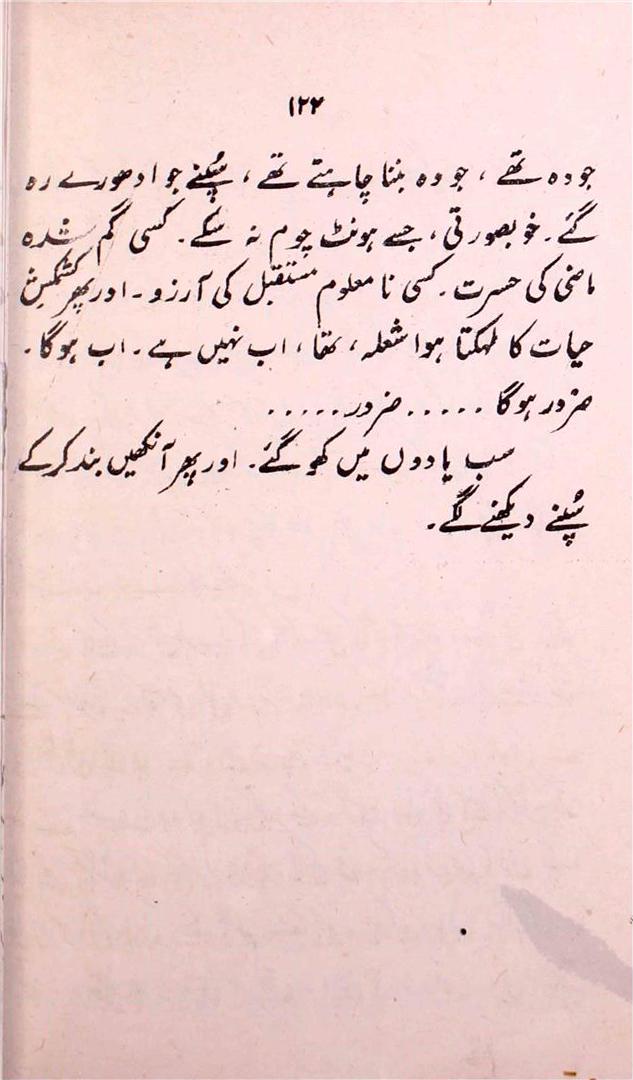 ۱۲۲
جو وہ تھے ، جو وہ بننا چاہتے تھے ، سُپنے جو ادھورے رہ
گئے۔ خوبصورتی ، جسے ہونٹ چوم نہ سکے۔ کسی گم شدہ
ماضی کی حسرت۔ کسی نا معلوم مستقبل کی آرزو۔ اور پھر کشمکش
حیات کا لہکتا ہوا شعلہ ، تھا ، اب نہیں ہے۔ اب ہوگا۔
ضرور ہوگا ..... ضرور .....
سب یادوں میں کھو گئے۔ اور پھر آنکھیں بند کر کے
سُپنے دیکھنے لگے۔